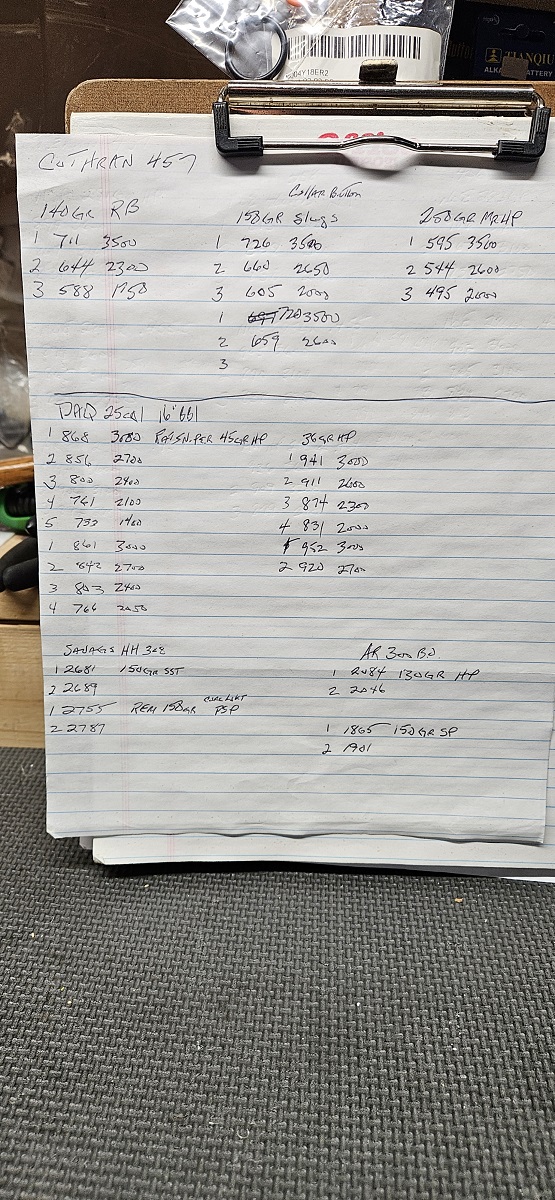 5004Y18ER2
TIANQIU
ALKA BATTERY
COTHRAN 457
Collar Button
140GR RB 150GR Slugs 250GR MRHP
1 711 3500 1 726 3500 1 595 3500
2 644 2300 2 660 2650 2 544 2600
3 588 1750 3 605 2000 3 495 2000
1 697 720 3500
2 659 2600
3
DAQ 25cal 16" bbl
1 868 3000 PER 45GR HP 36GR HP
2 856 2700 1 941 3000
3 800 2400 2 911 2600
4 761 2100 3 874 2300
5 733 1400 4 831 2000
1 861 3000 1 952 3000
2 842 2700 2 920 2700
3 803 2400
4 766 2050
SAVAGE HH 308 AR 300 BO
1 2681 150GR SST 1 2084 130GR HP
2 2689 2 2046
1 2755 REM 150GR CORE LOKT PSP
2 2787 1 1865 150GR SP
2 1901